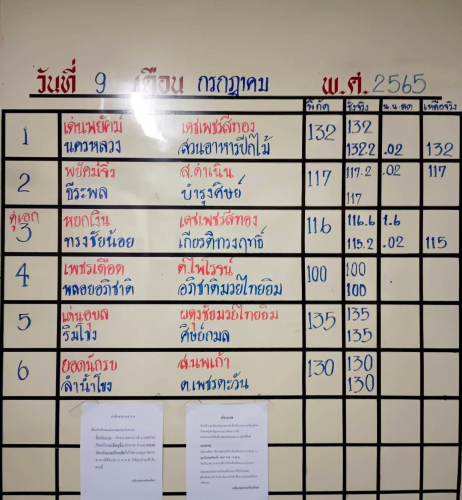 วันที่ 9 เดือน กรกฎาคม พ.ศ. 2565
พิกัด ชั่งจริง น.น.ลด เหลือจริง
1 เด่นพยัคฆ์ เดชเพชรสีทอง 132 132
นครหลวง สวนอาหารปีกไม้ 132.2 .02 132
2 พยัคฆ์จิ๋ว ส.ดำเนิน 117 117.2 .02 117
ธีระพล บำรุงศิษย์ 117
คู่เอก
3 หยกเงิน เดชเพชรสีทอง 116 116.6 1.6
ทรงชัยน้อย เกียรติทรงฤทธิ์ 115.2 .02 115
4 เพชรเดือด ต.ไพโรจน์ 100 100
พลอยอภิชาติ อภิชาติมวยไทยยิม 100
5 เด่นอุบล ผดุงชัยมวยไทยยิม 135 135
ริมโขง ศิษย์กมล 135
6 ยอดนักรบ ส.นพเก้า 130 130
ลำน้ำโขง ด.เพชรตะวัน 130